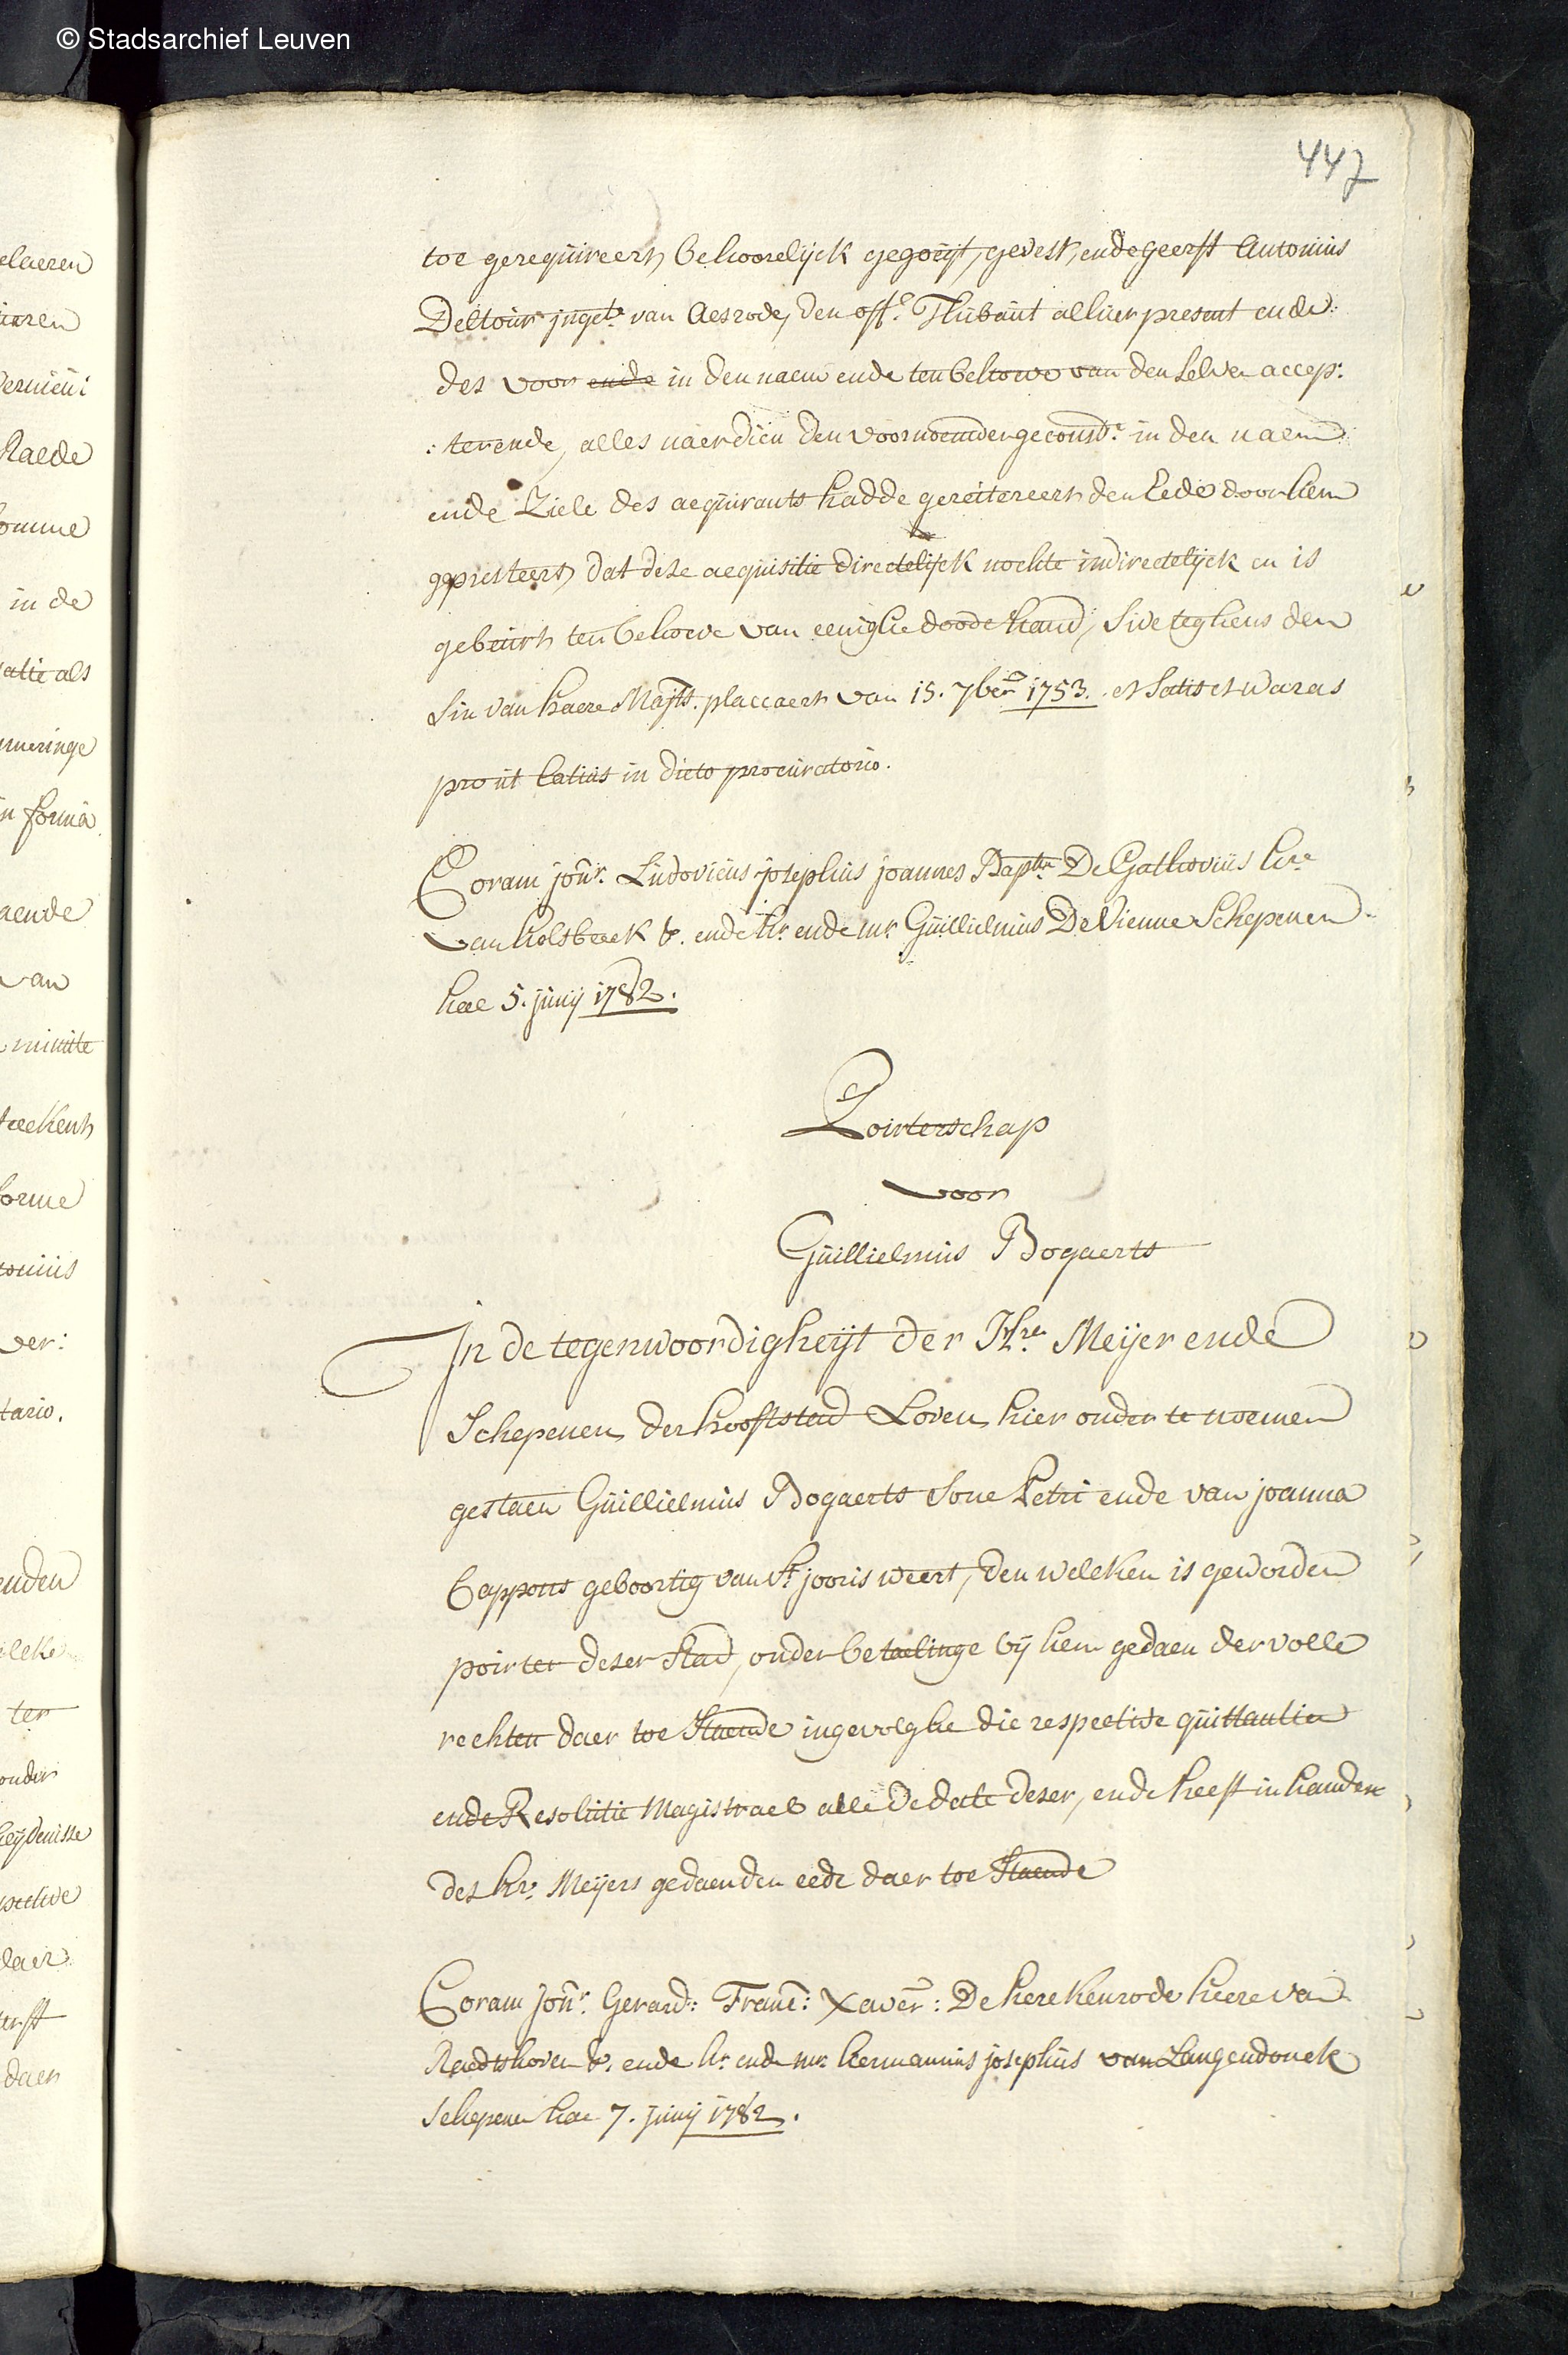 © Stadsarchief Leuven
447
toe gerequireert behoorelijck gegoeijt, gevest, ende geerft Antonius
Deltour jnget.e van Aesrode, den off.e Thibaut alhier present ende
des voor ende in den naem ende ten behoeve van den selven accep:
:terende, alles naerdien den voornoemden geconst.e in den naem
ende ziele des aequirants hadde gereitereert den eede door hem
gepresteert, dat dese aequisitie directelijck nochte indirectelijck en is
gebeurt ten behoeve van eenighe doode hand, sive teghens den
sin van haere Majts. placcaert van 15. 7ber 1753. et satis et waras
prout latius in dicto procuratorio.
Coram jonr. Ludovicus josephus joannes Bapta De Gathovius hre
van holsbeek &. ende hr. ende mr. Guillielmus De Vienne Schepenen
hac 5. junij 1782.
Poirterschap
voor
Guillielmus Bogaerts
In de tegenwoordigheijt der Hre. Meijer ende
Schepenen der hooftstad Loven hier onder te noemen
gestaen Guillielmus Bogaerts sone Petri ende van joanna
Cappons geboortig van St. jooris weert, den welcken is geworden
poirter deser stad, onder betaelinge bij hem gedaen der volle
rechten daer toe staende ingevolghe die respective quittantien
ende Resolutie Magistrael alle de date deser, ende heeft in handen
des hr. Meijers gedaen den eede daer toe staende
Coram jonr. Gerard: Franc: Xaver: De herckenrode heere van
Roodthoven &. ende hr. ende mr. hermannus josephus van Langendonck
schepenen hac 7. junij 1782.